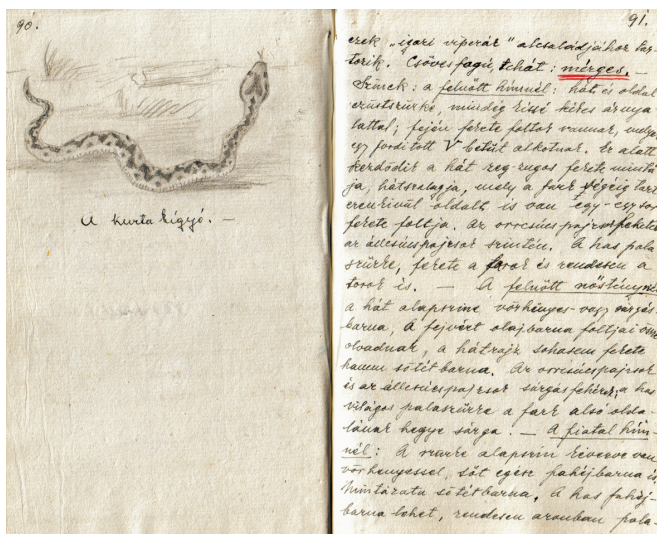 90.
A kurta kígyó. —
91.
ezek „igazi viperák" alcsaládjához tar-
torik. Csövesfogú, tehát: mérges. —
Színek: a felnőtt hímnél: hát és oldal
ezüstszürke, mindig kissé kékes árnya
lattal; fején fekete foltok vannak, melyek
egy fordított V betűt alkotnak. Ez alatt
kezdődik a hát zeg-zugos fekete mintá
ja, hátszalagja, mely a fark végéig tart
ezenkívül oldalt is van egy-egy sor
fekete foltja. Az orrcsúcspajzs fekete
az állcsúcspajzsok szintén. A has pala
szürke, fekete a farok és rendesen a
torok is. — A felnőtt nősténynél
a hát alapszíne vörhenyes- vagy sárgás
barna, A fejvért olajbarna foltjai össze
olvadnak, a hátrajz sohasem fekete
hanem sötétbarna. Az orrcsúcspajzsok
és az állcsúcspajzsok sárgásfehérek, a has
világos palaszürke a fark alsó olda-
lának hegye sárga. — A fiatal hím-
nél: A szürke alapszín keverve van
vörhenyessel, sőt egész fahéjbarna is,
Mintázata sötétbarna. A has fahéj-
barna lehet, rendesen azonban pala-